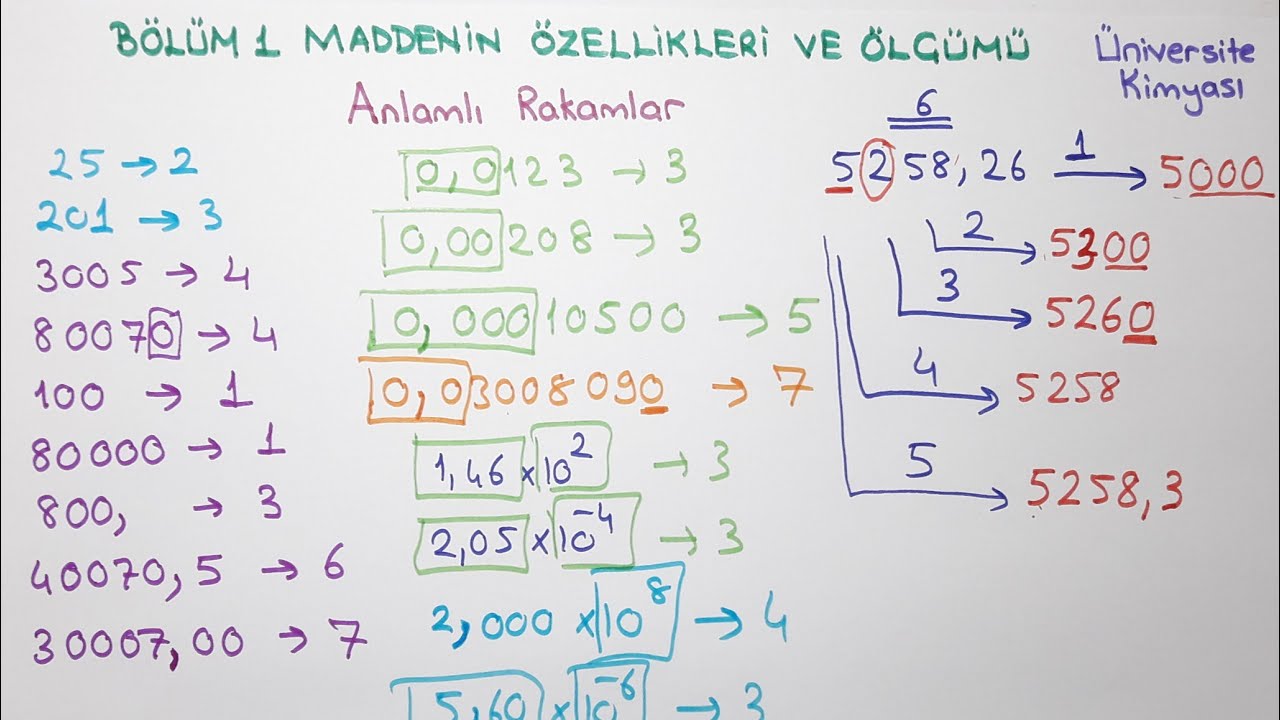 BÖLÜM 1 MADDENİN ÖZELLİKLERİ VE ÖLGÜMÜ
Üniversite
Kimyası
Anlamlı Rakamlar
25 → 2
201 → 3
3005 → 4
80070 → 4
100 → 1
80000 → 1
800, → 3
40070,5 → 6
30007,00 → 7
0,0123 → 3
0,00208 → 3
0,00010500 → 5
0,03008090 → 7
1,46 x 10² → 3
2,05 x 10⁻⁴ → 3
2,000 x 10⁸ → 4
5,60 x 10⁻⁶ → 3
6
5258,26 1→ 5000
2→ 5300
3→ 5260
4→ 5258
5→ 5258,3